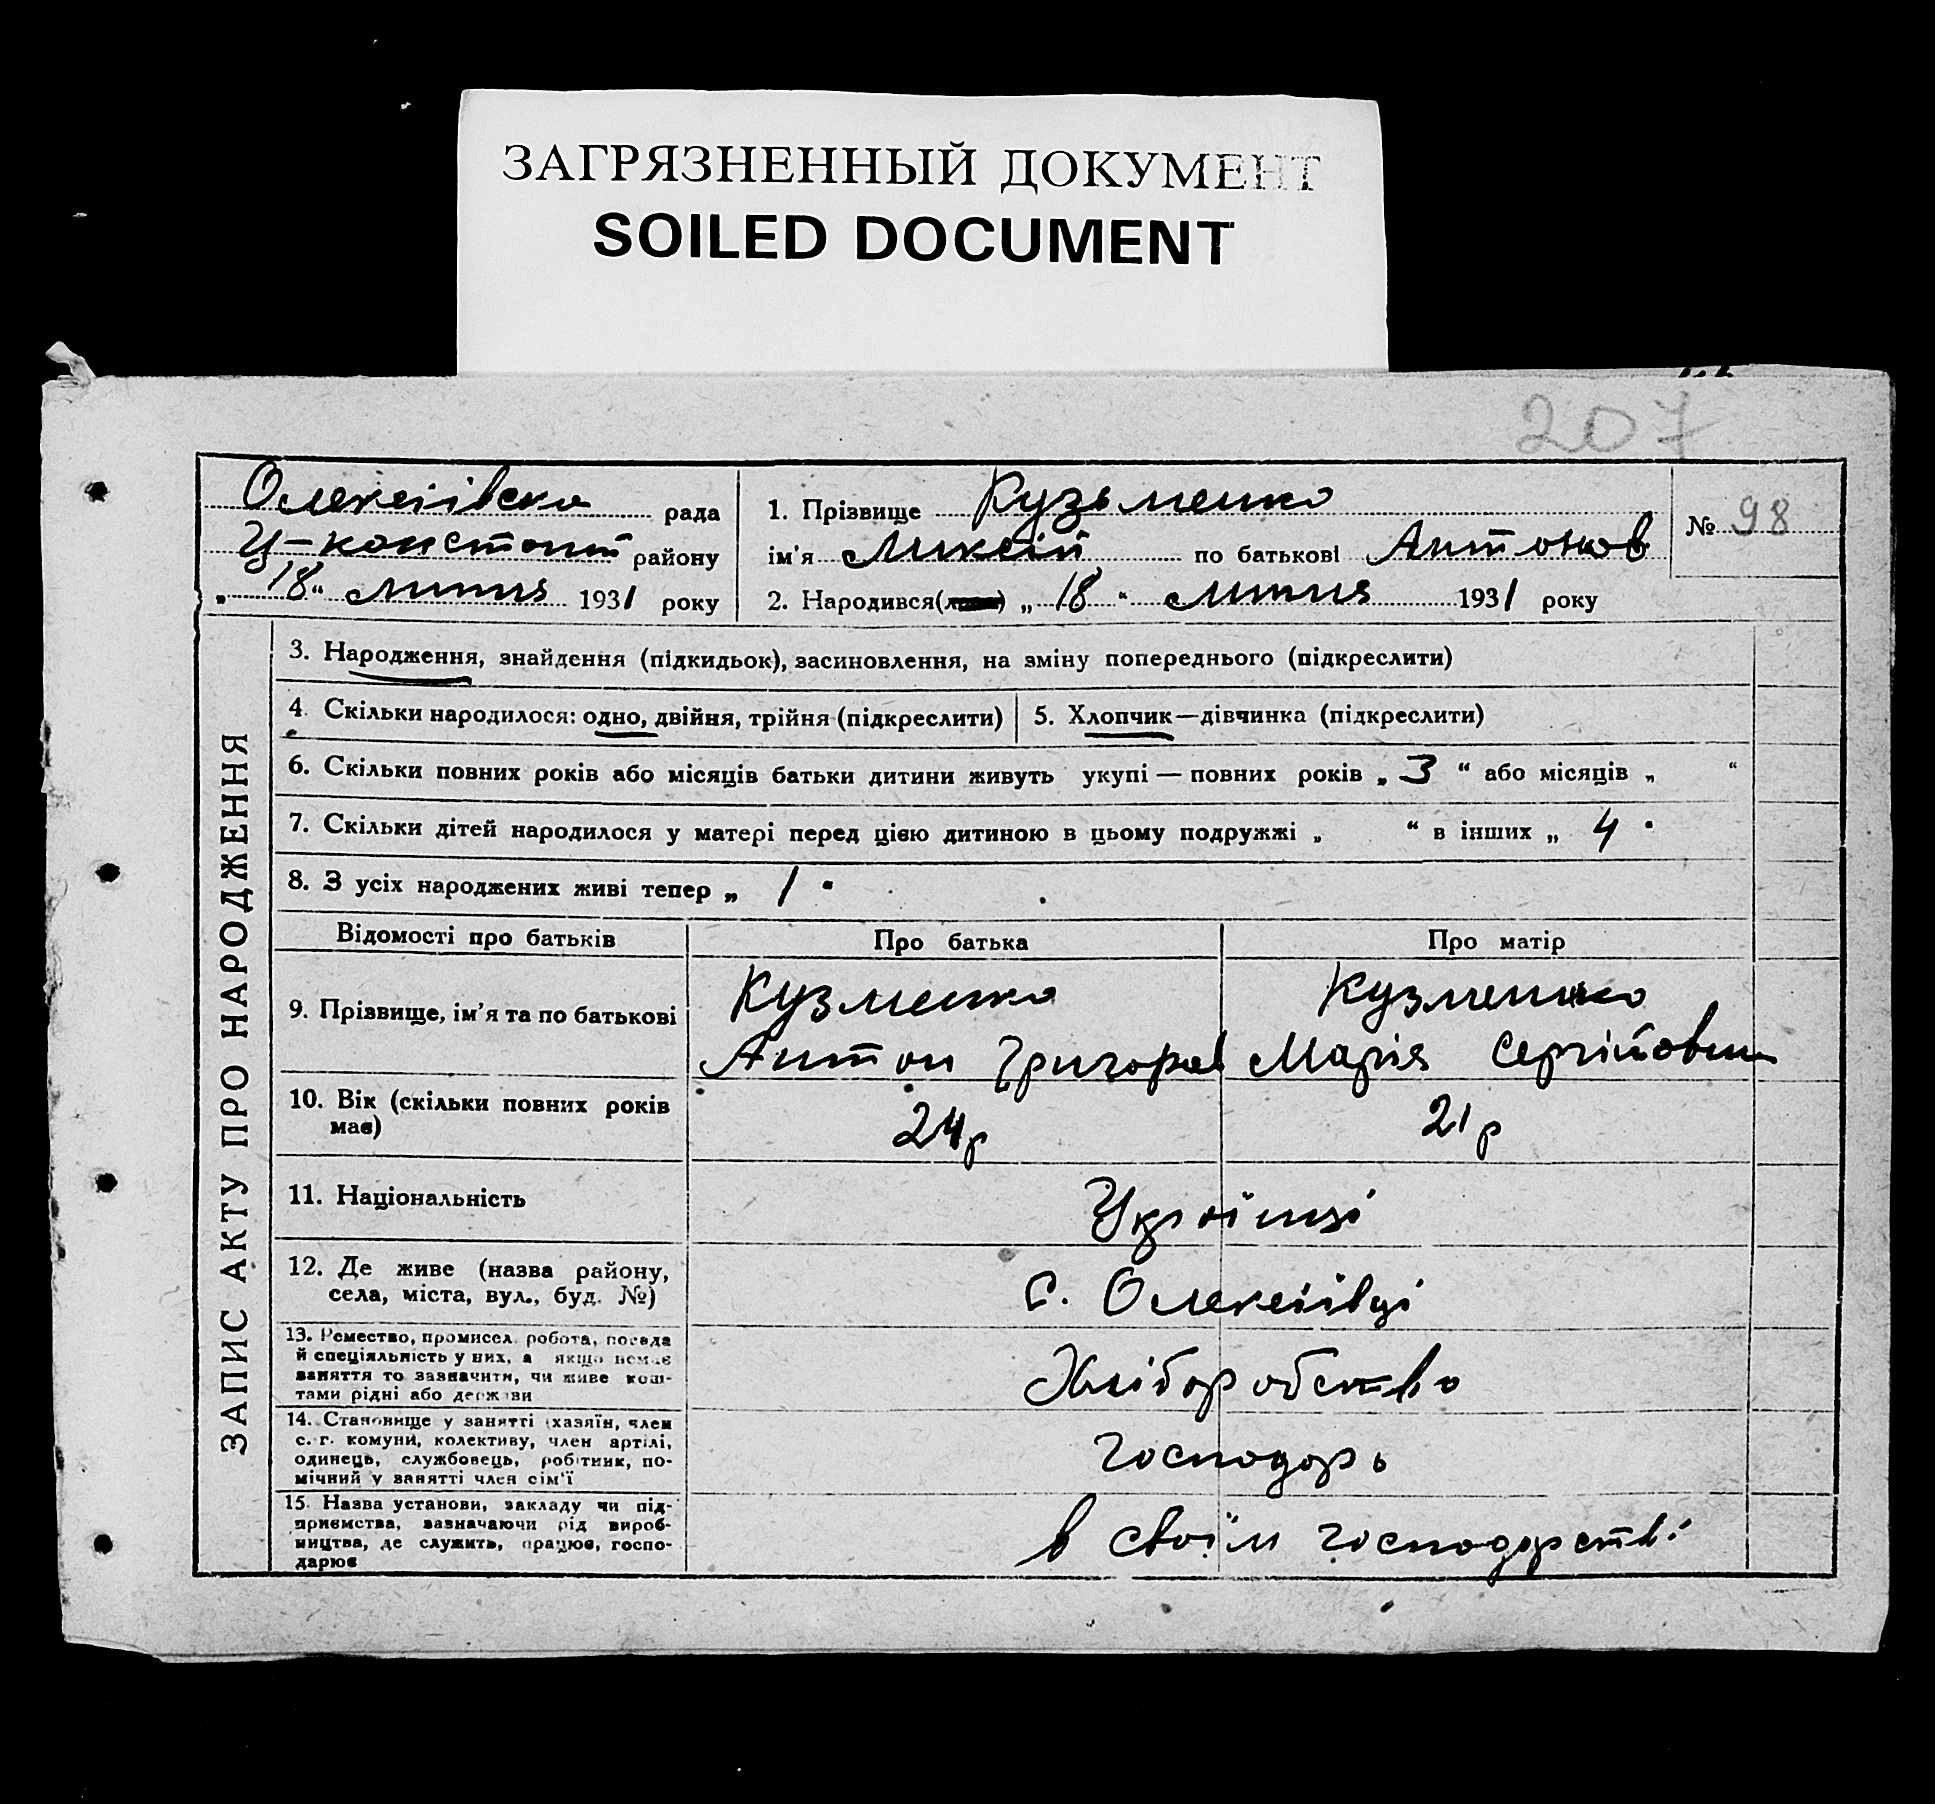 ЗАГРЯЗНЕННЫЙ ДОКУМЕНТ
SOILED DOCUMENT
207
Олексіївска рада
району
„18“ липня 1931 року
1. Прізвище Кузьменко
ім'я по батькові Антонов
2. Народився( ) „18“ липня 1931 року
№ 98
ЗАПИС АКТУ ПРО НАРОДЖЕННЯ
3. Народження, знайдення (підкидьок), засиновлення, на зміну попереднього (підкреслити)
4. Скільки народилося: одно, двійня, трійня (підкреслити)
5. Хлопчик—дівчинка (підкреслити)
6. Скільки повних років або місяців батьки дитини живуть укупі — повних років „ 3 “ або місяців „ “
7. Скільки дітей народилося у матері перед цією дитиною в цьому подружжі „ “ в інших „ 4 "
8. З усіх народжених живі тепер „ 1 "
Відомості про батьків
Про батька
Про матір
9. Прізвище, ім'я та по батькові
Кузменко
Антон Григоров
Кузменко
Марія Сергійовна
10. Вік (скільки повних років
має)
24р
21р
11. Національність
Українці
12. Де живе (назва району,
села, міста, вул., буд. №)
С. Олексіївці
13. Ремество, промисел, робота, посада
й спеціяльність у них, а якщо немає
заняття то зазначити, чи живе кош-
тами рідні або держави
Хліборобство
14. Становище у занятті (хазяїн, член
с.-г. комуни, колективу, член артілі,
одинець, службовець, робітник, по-
мічний у занятті член сім'ї
Господорь
15. Назва установи, закладу чи під-
приємства, зазначаючи рід вироб-
ництва, де служить, працює, госпо-
дарює
в своїм господорстві